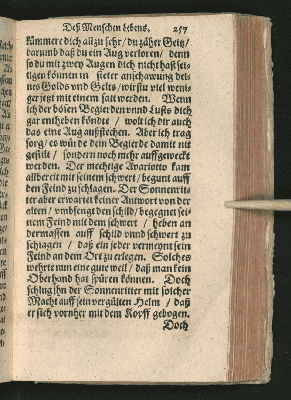 Deß Menschen Lebens. 257
kümmere dich allzu sehr / du zäher Geitz /
darumb daß du ein Aug verloren / denn
so du mit zwey Augen dich nicht hast set-
tigen können in steter anschawung dei-
nes Golds vnd Gelts / wirstu viel weni-
ger jetzt mit einem satt werden. Wenn
ich der bösen Begierden vnnd Lusts dich
gar entheben köndte / wolt ich dir auch
das eine Aug außstechen. Aber ich trag
sorg / es würde dein Begierde damit nit
gestilt / sondern noch mehr auffgeweckt
werden. Der mechtige Avariotto kam
allbereit mit seinem schwert / begunt auff
den Feind zu schlagen. Der Sonnenrit-
ter aber erwartet keiner Antwort von der
alten / vmbfengt den schild / begegnet sei-
nem Feind mit dem schwert / heben an
dermassen auff schild vnnd schwert zu
schlagen / daß ein jeder vermeynt sein
Feind an dem Ort zu erlegen. Solches
wehrte nun eine gute weil / daß man kein
Oberhand hat spüren können. Doch
schlug jhn der Sonnenritter mit solcher
Macht auff sein vergülten Helm / daß
er sich vornher mit dem Kopff gebogen.
Doch